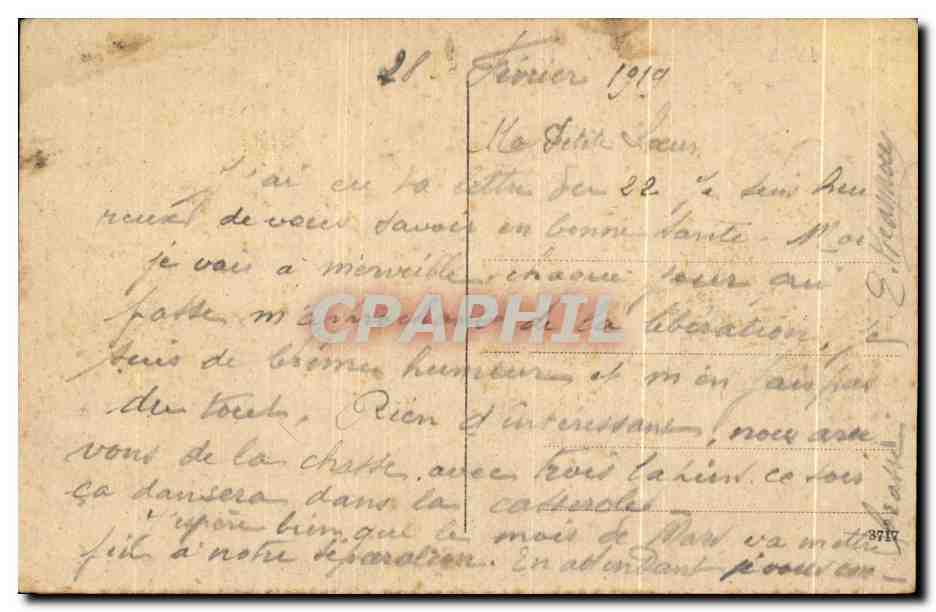 28 Février 1919
Ma Petite Soeur
J'ai eu ta lettre du 22 je suis heu
reux de vous savoir en bonne santé. Moi
je vais à merveille chaque jour qui
passe m' de la libération, je
suis de bonne humeur et m'en fais pas
du tout. Rien d'intéressant, nous arri
vons de la chasse avec trois lapins ce soir
ça dansera dans la casserole
J'espère bien que le mois de Mars va mettre
fin à notre séparation. En attendant je vous em-
brasse
E.
3717
CPAPHIL